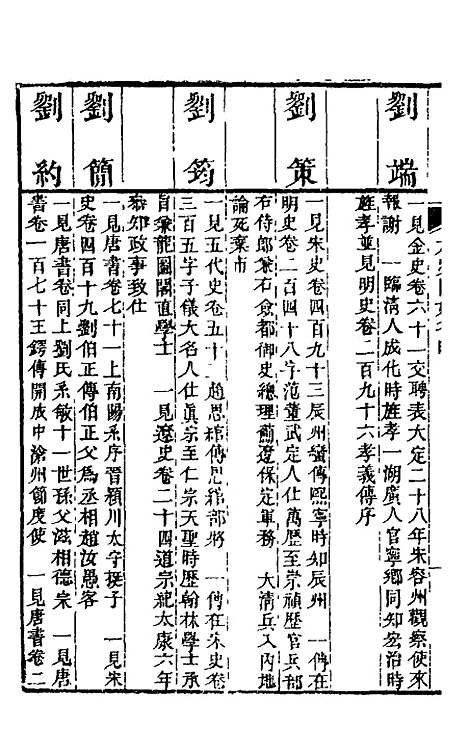 劉端
一見金史卷六十一交聘表大定二十八年朱容州觀察使來
報謝　一臨淸人成化時旌孝一湖廣人官寧鄉同知宏治時
旌孝並見明史卷二百九十六孝義傳序
劉策
一見朱史卷四百九十三辰州蠻傳熙寧時知辰州　一傳在
明史卷二百四十八字范董武定人仕萬歷至崇禎歷官兵部
右侍郎兼右僉都御史總理薊遼保定軍務　大淸兵入內地
論死棄市
劉筠
一見五代史卷五十　趙思綰傳思綰部將　一傳在宋史卷
三百五字子儀大名人仕眞宗至仁宗天聖時歷翰林學士承
旨兼龍圖閣直學士　一見遼史卷二十四道宗紀太康六年
參知政事致仕
劉簡
一見唐書卷七十一上南陽系序晉潁川太守接子　一見朱
史卷四百十九劉伯正傳伯正父為丞相趙汝愚客
劉約
一見唐書卷同上劉氏系敏十一世孫父滋相德宗　一見唐
書卷一百七十王鍔傳開成中滄州節度使　一見唐書卷二